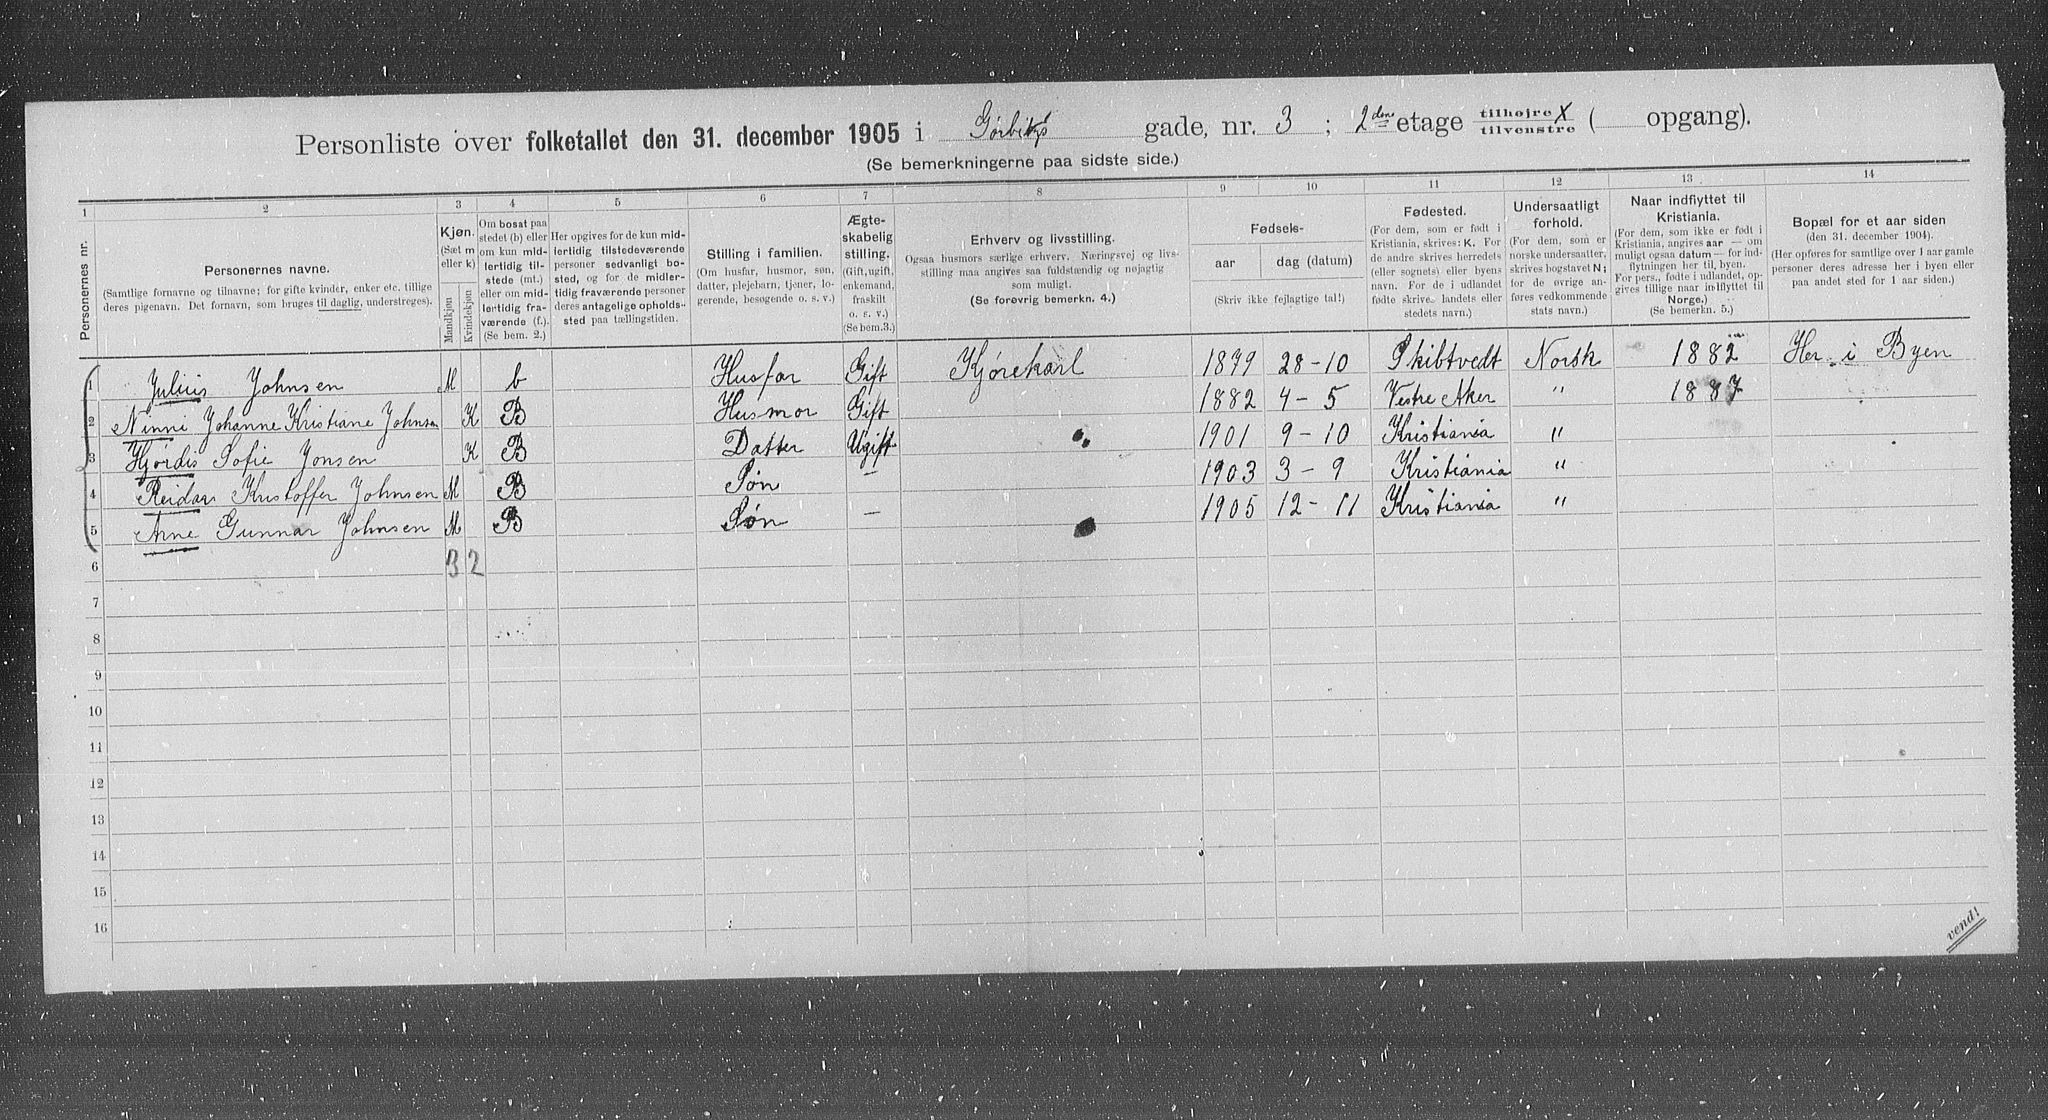 Personliste over folketallet den 31. december 1905 i Gørbitzs gade, nr. 3 ; 2den etage tilhøire X tilvenstre ( opgang).
(Se bemerkningerne paa sidste side.)
1 2 3 4 5 6 7 8 9 10 11 12 13 14
Personernes nr.
Personernes navne.
(Samtlige fornavne og tilnavne; for gifte kvinder, enker etc. tillige
deres pigenavn. Det fornavn, som bruges til daglig, understreges).
Kjøn.
(Sæt m
eller k)
Mandkjøn
Kvindekjøn
Om bosat paa
stedet (b) eller
om kun mid-
lertidig til-
stede (mt.)
eller om mid-
lertidig fra-
værende (f.).
(Se bem. 2.)
Her opgives for de kun mid-
lertidig tilstedeværende
personer sedvanligt bo-
sted, og for de midler-
tidig fraværende personer
deres antagelige opholds-
sted paa tællingstiden.
Stilling i familien.
(Om husfar, husmor, søn,
datter, plejebarn, tjener, lo-
gerende, besøgende o. s. v.)
Ægte-
skabelig
stilling.
(Gift, ugift,
enkemand,
fraskilt
o. s. v.)
(Se bem.3.)
Erhverv og livsstilling.
Ogsaa husmors særlige erhverv. Næringsvej og livs-
stilling maa angives saa fuldstændig og nøjagtig
som muligt.
(Se forøvrig bemerkn. 4.)
Fødsels-
aar
dag (datum)
(Skriv ikke fejlagtige tal!)
Fødested.
(For dem, som er født i
Kristiania, skrives: K. For
de andre skrives herredets
(eller sognets) eller byens
navn. For de i udlandet
fødte skrives landets eller
stedets navn.)
Undersaatligt
forhold.
(For dem, som er
norske undersaatter,
skrives bogstavet N;
for de øvrige an-
føres vedkommende
stats navn.)
Naar indflyttet til
Kristiania.
(For dem, som ikke er født i
Kristiania, angives aar — om
muligt ogsaa datum — for ind-
flytningen her til byen.
For pers., fødte i udlandet, op-
gives tillige naar indflyttet til
Norge.)
(Se bemerkn. 5.)
Bopæl for et aar siden
(den 31. december 1904).
(Her opføres for samtlige over 1 aar gamle
personer deres adresse her i byen eller
paa andet sted for 1 aar siden.)
1 Julius Johnsen M b Husfar Gift Kjørekarl 1879 28-10 Skibtvedt Norsk 1882 Her i Byen
2 Ninni Johanne Kristiane Johnsen K B Husmor Gift 1882 4-5 Vestre Aker " 1887
3 Hjørdis Sofie Jonsen K B Datter Ugift 1901 9-10 Kristiania "
4 Reidar Kristoffer Johnsen M B Søn — 1903 3-9 Kristiania "
5 Arne Gunnar Johnsen M B Søn — 1905 12-11 Kristiania "
6 3 2
7
8
9
10
11
12
13
14
15
16
vend!